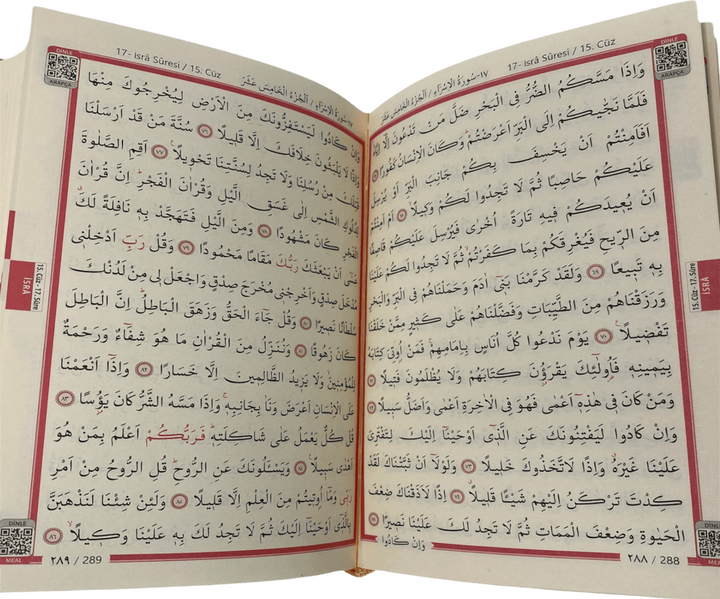 17- İsrâ Sûresi / 15. Cüz
١٧-سُورَةُ الْاِسْرَاءِ / اَلْجُزْءُ الْخَامِسُ عَشَرَ
DİNLE
ARAPÇA
وَاِذَا مَسَّكُمُ الضُّرُّ فِي الْبَحْرِ ضَلَّ مَنْ تَدْعُونَ اِلَّٓا
فَلَمَّا نَجّٰيكُمْ اِلَى الْبَرِّ اَعْرَضْتُمْ وَكَانَ الْاِنْسَانُ كَفُورًا ﴿٦٧﴾
اَفَاَمِنْتُمْ اَنْ يَخْسِفَ بِكُمْ جَانِبَ الْبَرِّ اَوْ يُرْسِلَ
عَلَيْكُمْ حَاصِبًا ثُمَّ لَا تَجِدُوا لَكُمْ وَكِيلًا ﴿٦٨﴾ اَمْ اَمِنْتُمْ
اَنْ يُعِيدَكُمْ فِيهِ تَارَةً اُخْرٰى فَيُرْسِلَ عَلَيْكُمْ قَاصِفًا
مِنَ الرِّيحِ فَيُغْرِقَكُمْ بِمَا كَفَرْتُمْ ثُمَّ لَا تَجِدُوا لَكُمْ عَلَيْنَا
بِهِ تَبِيعًا ﴿٦٩﴾ وَلَقَدْ كَرَّمْنَا بَنِٓي اٰدَمَ وَحَمَلْنَاهُمْ فِي الْبَرِّ وَالْبَحْرِ
وَرَزَقْنَاهُمْ مِنَ الطَّيِّبَاتِ وَفَضَّلْنَاهُمْ عَلٰى كَثِيرٍ مِمَّنْ خَلَقْنَا
تَفْضِيلًا ﴿٧٠﴾ يَوْمَ نَدْعُوا كُلَّ اُنَاسٍ بِاِمَامِهِمْ فَمَنْ اُوتِيَ كِتَابَهُ
بِيَمِينِهِ فَاُولٰٓئِكَ يَقْرَؤُنَ كِتَابَهُمْ وَلَا يُظْلَمُونَ فَتِيلًا ﴿٧١﴾
وَمَنْ كَانَ فِي هٰذِهِٓ اَعْمٰى فَهُوَ فِي الْاٰخِرَةِ اَعْمٰى وَاَضَلُّ سَبِيلًا ﴿٧٢﴾
وَاِنْ كَادُوا لَيَفْتِنُونَكَ عَنِ الَّذِٓي اَوْحَيْنَٓا اِلَيْكَ لِتَفْتَرِيَ
عَلَيْنَا غَيْرَهُ وَاِذًا لَاتَّخَذُوكَ خَلِيلًا ﴿٧٣﴾ وَلَوْلَٓا اَنْ ثَبَّتْنَاكَ لَقَدْ
كِدْتَ تَرْكَنُ اِلَيْهِمْ شَيْـًٔا قَلِيلًا ﴿٧٤﴾ اِذًا لَاَذَقْنَاكَ ضِعْفَ
الْحَيٰوةِ وَضِعْفَ الْمَمَاتِ ثُمَّ لَا تَجِدُ لَكَ عَلَيْنَا نَصِيرًا ﴿٧٥﴾
وَاِنْ كَادُوا
٢٨٨ / 288
MEAL
15. Cüz - 17. Sûre
İSRÂ
17- İsrâ Sûresi / 15. Cüz
١٧-سُورَةُ الْاِسْرَاءِ / اَلْجُزْءُ الْخَامِسُ عَشَرَ
DİNLE
ARAPÇA
وَاِنْ كَادُوا لَيَسْتَفِزُّونَكَ مِنَ الْاَرْضِ لِيُخْرِجُوكَ مِنْهَا
وَاِذًا لَا يَلْبَثُونَ خِلَافَكَ اِلَّا قَلِيلًا ﴿٧٦﴾ سُنَّةَ مَنْ قَدْ اَرْسَلْنَا
قَبْلَكَ مِنْ رُسُلِنَا وَلَا تَجِدُ لِسُنَّتِنَا تَحْوِيلًا ﴿٧٧﴾ اَقِمِ الصَّلٰوةَ
لِدُلُوكِ الشَّمْسِ اِلٰى غَسَقِ الَّيْلِ وَقُرْاٰنَ الْفَجْرِ اِنَّ قُرْاٰنَ
الْفَجْرِ كَانَ مَشْهُودًا ﴿٧٨﴾ وَمِنَ الَّيْلِ فَتَهَجَّدْ بِهِ نَافِلَةً لَكَ
عَسٰٓى اَنْ يَبْعَثَكَ رَبُّكَ مَقَامًا مَحْمُودًا ﴿٧٩﴾ وَقُلْ رَبِّ اَدْخِلْنِي
مُدْخَلَ صِدْقٍ وَاَخْرِجْنِي مُخْرَجَ صِدْقٍ وَاجْعَلْ لِي مِنْ لَدُنْكَ
سُلْطَانًا نَصِيرًا ﴿٨٠﴾ وَقُلْ جَٓاءَ الْحَقُّ وَزَهَقَ الْبَاطِلُ اِنَّ الْبَاطِلَ
كَانَ زَهُوقًا ﴿٨١﴾ وَنُنَزِّلُ مِنَ الْقُرْاٰنِ مَا هُوَ شِفَٓاءٌ وَرَحْمَةٌ
لِلْمُؤْمِنِينَ وَلَا يَزِيدُ الظَّالِمِينَ اِلَّا خَسَارًا ﴿٨٢﴾ وَاِذَٓا اَنْعَمْنَا
عَلَى الْاِنْسَانِ اَعْرَضَ وَنَاٰ بِجَانِبِهِ وَاِذَا مَسَّهُ الشَّرُّ كَانَ يَؤُسًا ﴿٨٣﴾
قُلْ كُلٌّ يَعْمَلُ عَلٰى شَاكِلَتِهِ فَرَبُّكُمْ اَعْلَمُ بِمَنْ هُوَ
اَهْدٰى سَبِيلًا ﴿٨٤﴾ وَيَسْـَٔلُونَكَ عَنِ الرُّوحِ قُلِ الرُّوحُ مِنْ اَمْرِ
رَبِّي وَمَٓا اُوتِيتُمْ مِنَ الْعِلْمِ اِلَّا قَلِيلًا ﴿٨٥﴾ وَلَئِنْ شِئْنَا لَنَذْهَبَنَّ
بِالَّذِٓي اَوْحَيْنَٓا اِلَيْكَ ثُمَّ لَا تَجِدُ لَكَ بِهِ عَلَيْنَا وَكِيلًا ﴿٨٦﴾
٢٨٩ / 289
DİNLE
MEAL
15. Cüz - 17. Sûre
İSRÂ